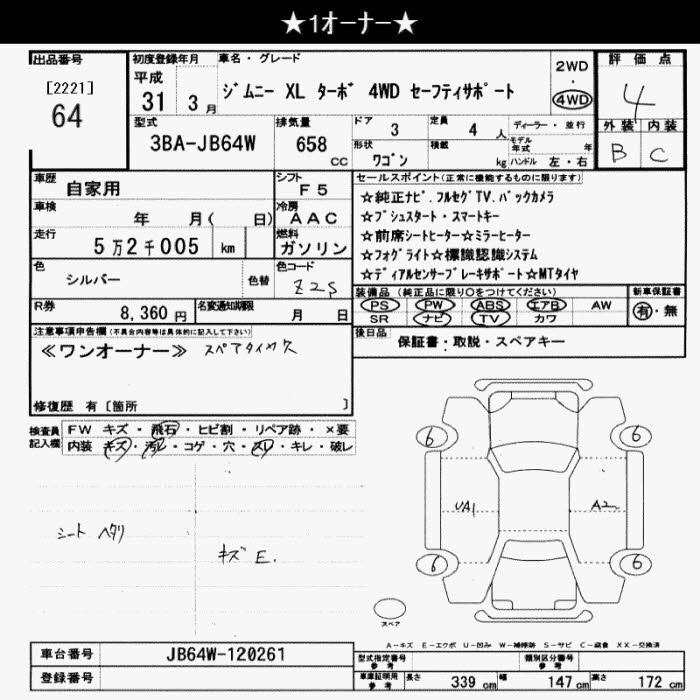 ★1オーナー★
出品番号
[2221]
64
初度登録年月
平成
31 3月
車名・グレード
ジムニー XL ターボ 4WD セーフティサポート
2WD
・
4WD
評価点
4
外装 内装
B C
型式
3BA-JB64W
排気量
658
cc
ドア 3
定員 4 人
形状 ワゴン
積載 kg
ディーラー・並行
モデル年式 年
ハンドル 左・右
車歴 自家用
シフト F5
車検 年 月( 日)
冷房 AAC
走行 5万2千005 km
燃料 ガソリン
色 シルバー 色替
色コード Z2S
R券 8,360円
名変通知期限 月 日
セールスポイント(正常に機能するものに限ります)
☆純正ナビ.フルセグTV.バックカメラ
☆プシュスタート・スマートキー
☆前席シートヒーター☆ミラーヒーター
☆フォグライト☆標識認識システム
☆ディアルセンサーブレーキサポート☆MTタイヤ
装備品(純正品に限り○をつけてください)
PS PW ABS エアB AW
SR ナビ TV カワ
新車保証書
有・無
後日品 保証書・取説・スペアキー
注意事項申告欄(不具合内容等は具体的に記入して下さい)
≪ワンオーナー≫ スペアタイヤ欠
修復歴 有〔箇所 〕
検査員記入欄
FW キズ・飛石・ヒビ割・リペア跡・×要
内装 キズ・汚レ・コゲ・穴・スレ・キレ・破レ
シート ヘタリ
キズ E.
6 6
UA1 A2
6 6
スペア
A-キズ E-エクボ U-凹み W-補修跡 S-サビ C-腐食 XX-交換済
車台番号 JB64W-120261
登録番号
型式指定番号 参考
類別区分番号 参考
車庫証明用 参考 長さ 339 cm 幅 147 cm 高さ 172 cm